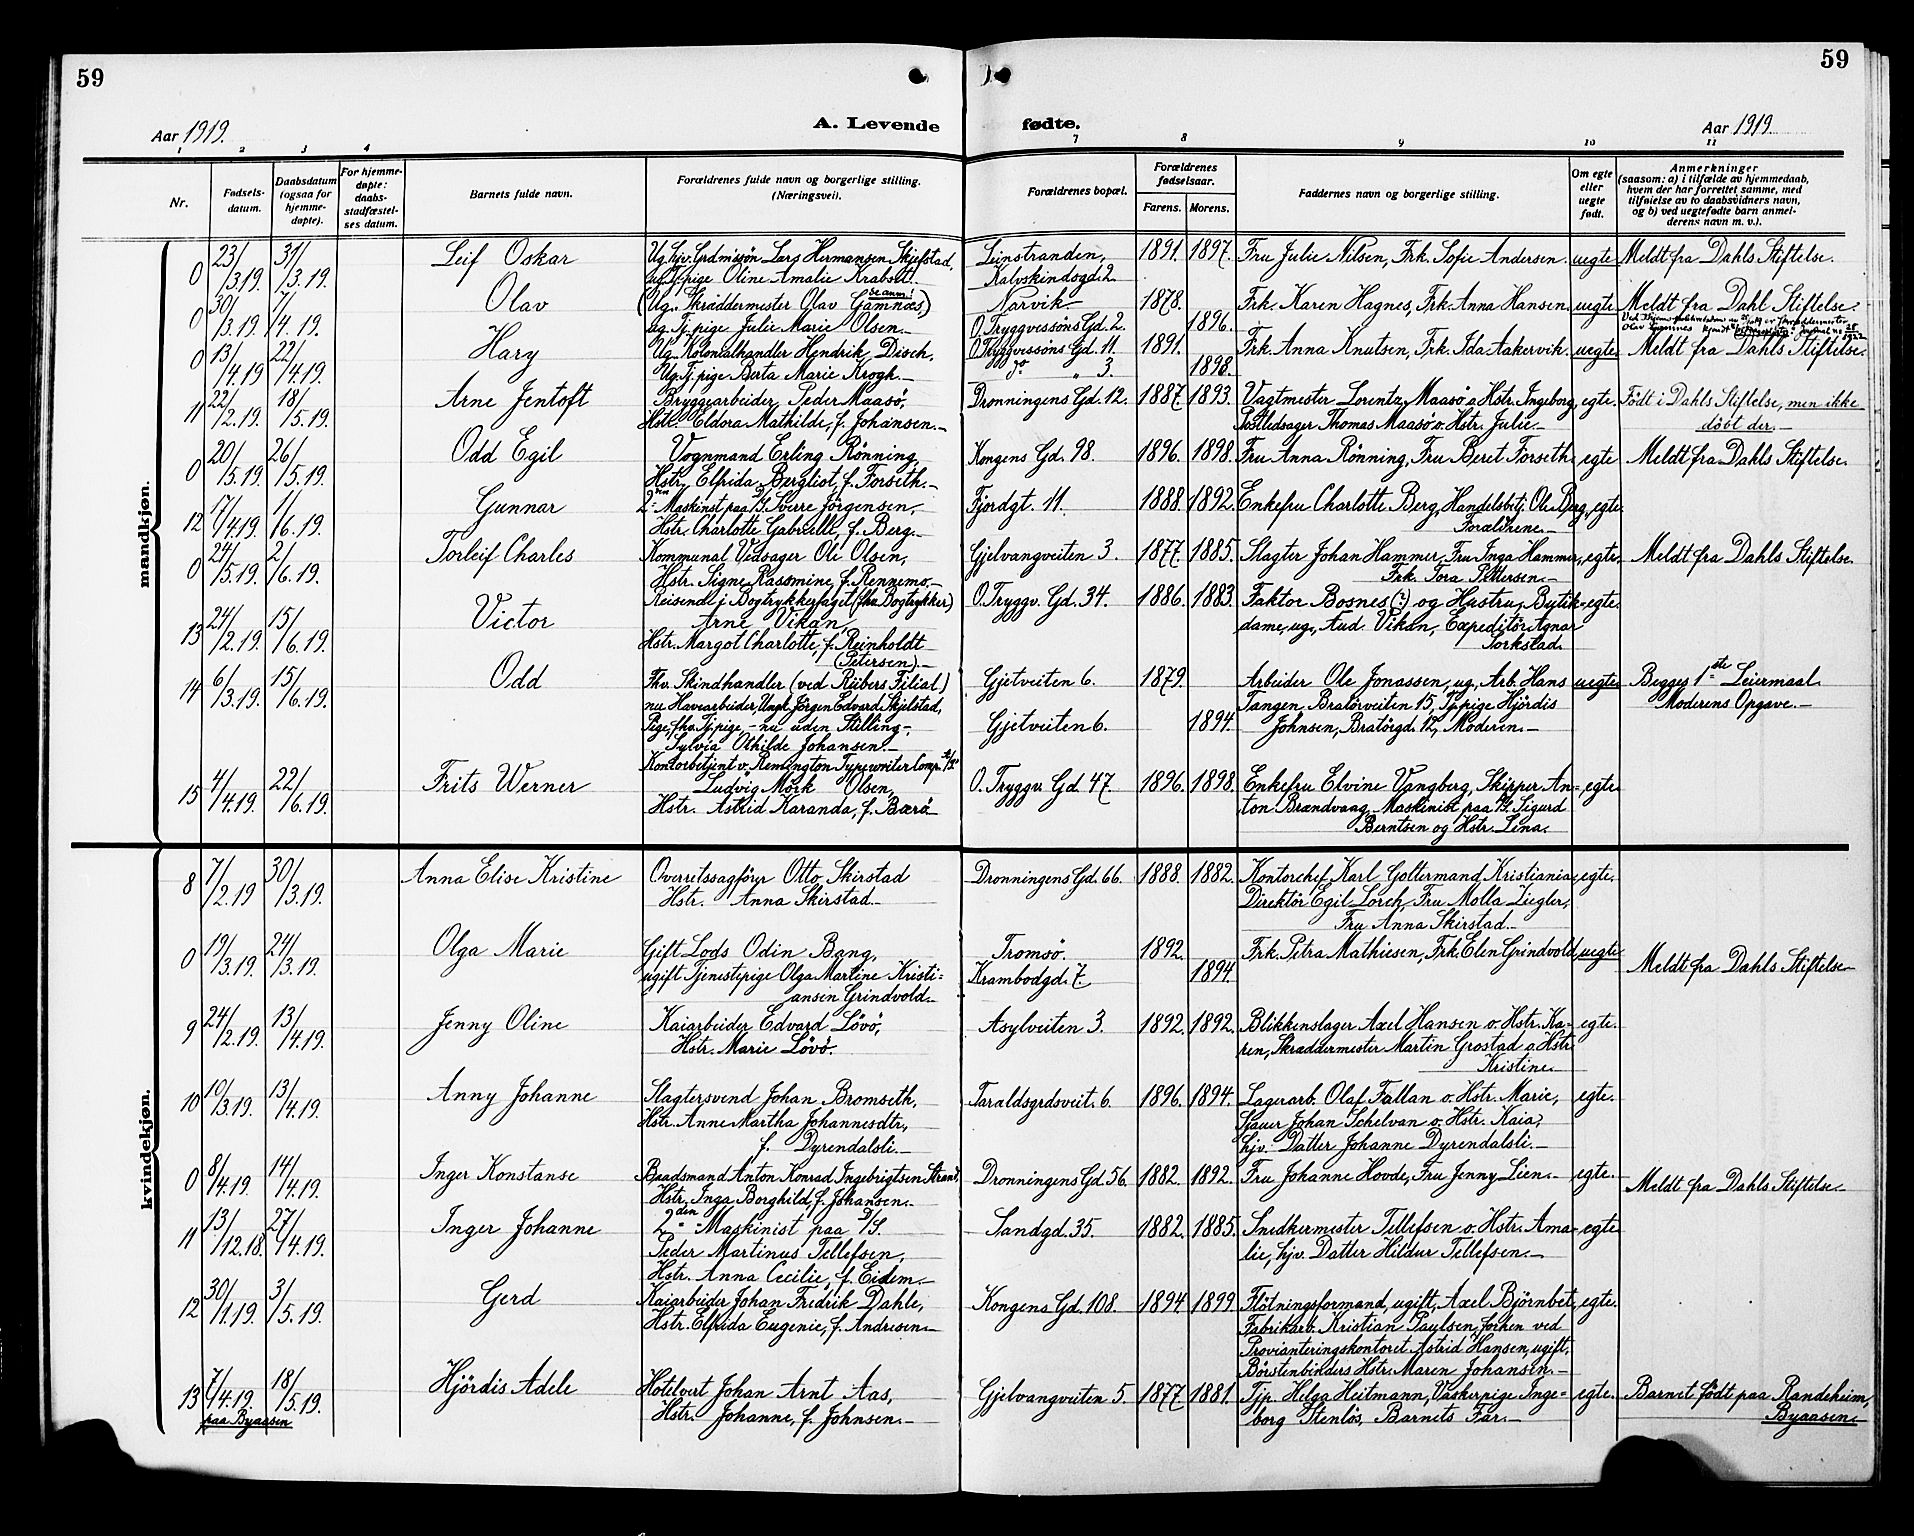 59
59
Aar 1919.
A. Levende
fødte.
Aar 1919.
1 2 3 4 7 8 9 10 11
Nr.
Fødsels-
datum.
Daabsdatum
(ogsaa for
hjemme-
døpte).
For hjemme-
døpte:
daabs-
stadfæstel-
ses datum.
Barnets fulde navn.
Forældrenes fulde navn og borgerlige stilling.
(Næringsvei).
Forældrenes bopæl.
Forældrenes
fødselsaar.
Farens. Morens.
Faddernes navn og borgerlige stilling.
Om egte
eller
uegte
født.
Anmerkninger
(saasom: a) i tilfælde av hjemmedaab,
hvem der har forrettet samme, med
tilføielse av to daabsvidners navn,
og b) ved uegtefødte barn anmel-
derens navn m. v.).
mandkjøn.
0 23/3.19. 31/3.19. Leif Oskar
Ug. hjv. Grdmssøn Lars Hermansen Skjefstad,
ug. Tj.pige Oline Amalie Krabset.
Leinstranden,
Kalvskindsgd. 2
1891. 1897. Fru Julie Nilsen, Frk. Sofie Andersen. uegte Meldt fra Dahls Stiftelse.
0 30/3.19. 7/4.19. Olav
(Ug. Skræddermester Olav Gjømnæs)
ug. Tj.pige Julie Marie Olsen.
Narvik
O. Tryggvessøns Gd. 2.
1878. 1896. Frk. Karen Hagnes, Frk. Anna Hansen. uegte Meldt fra Dahl Stiftelse.
0 13/4.19 22/4.19. Hary
Ug. Kolonialhandler Hendrik Disch,
Ug. Tj.pige Berta Marie Krogh.
O. Tryggvessøns Gd. 11
do " 3.
1891. 1898. Frk. Anna Knutsen, Frk. Ida Aakervik. uegte Meldt fra Dahls Stiftelse.
11 22/2.19. 18/5.19. Arne Jentoft
Bryggearbeider Peder Maasö,
Hstr. Eldora Mathilde, f. Johansen.
Dronningens Gd. 12. 1887. 1893. Vagtmester Lorentz Maasö o Hstr. Ingeborg,
Postledsager Thomas Maasö o. Hstr. Julie.
egte. Födt i Dahls Stiftelse, men ikke
döbt der.
0 20/5.19. 26/5.19. Odd Egil
Vognmand Erling Rönning
Hstr. Elfrida Bergliot, f. Forseth.
Kongens Gd. 98. 1896. 1898. Fru Anna Rönning, Fru Beret Forseth. egte Meldt fra Dahls Stiftelse
12 7/4.19. 1/6.19. Gunnar
2den Maskinist paa D/S. Sverre Jörgensen,
Hstr. Charlotte Gabrielle, f. Berg.
Fjordgt. 11. 1888. 1892. Enkefru Charlotte Berg, Handelsbetj. Ole Berg,
Forældrene.
egte.
0 24/5.19. 2/6.19. Torleif Charles
Kommunal Vedsager Ole Olsen,
Hstr. Signe Rassmine, f. Rennemo.
Gjelvangveiten 3. 1877. 1885. Slagter Johan Hammer, Fru Inga Hammer,
Frk. Tora Pettersen.
egte. Meldt fra Dahls Stiftelse
13 24/2.19. 15/6.19. Victor
Reisende i Bogtrykkerfaget (fhv Bogtrykker)
Arne Vikan,
Hstr. Margot Charlotte, f. Reinholdt
(Petersen).
O. Tryggv. Gd. 34. 1886. 1883. Faktor Bosnes (?) og Hustru, Butik-
dame, ug., Aud. Vikan, Expeditör Agnar
Torkstad.
egte.
14 6/3.19. 15/6.19. Odd
Fhv. Skindhandler (ved Rübers Filial)
nu Havearbeider, Ungk. Jörgen Edvard Skjelstad,
Pige, fhv. Tj.pige, - nu uden Stilling -,
Sylvia Othilde Johansen.
Gjetveiten 6.
Gjetveiten 6.
1879. 1894. Arbeider Ole Jonassen, ug., Arb. Hans
Tangen Bratörveiten 15, Tj.pige Hjördis
Johnsen, Bratörgd. 12, Moderen.
uegte Begges 1ste Leiermaal.
Moderens Opgave.
15 4/4.19. 22/6.19. Frits Werner
Kontorbetjent v. Remington Typewriter Comp.
Ludvig Mörk Olsen,
Hstr. Astrid Karanda, f. Bærö
O. Tryggv. Gd. 47. 1896. 1898. Enkefru Elvine Vangberg, Skipper An-
ton Brandvaag, Maskinist paa D/S. Sigurd
Berntsen og Hstr. Lina.
egte
kvindekjøn.
8 7/2.19 30/3.19. Anna Elise Kristine
Overretssagförer Otto Skirstad
Hstr. Anna Skirstad.
Dronningens Gd. 66. 1888. 1882. Kontorchef Karl Goltermand Kristiania,
Direktör Egil Lorch, Fru Molla Ziegler,
Fru Anna Skirstad.
egte.
0 19/3.19. 24/3.19. Olga Marie
Gift Lods Odin Bang,
ugift Tjenestepige Olga Martine Kristi-
ansen Grindvold.
Tromsö.
Krambodgd. 7.
1892. 1894. Frk. Petra Mathiesen, Frk. Elen Grindvold uegte Meldt fra Dahls Stiftelse
9 24/2.19. 13/4.19. Jenny Oline
Kaiarbeider Edvard Lövö,
Hstr. Marie Lövö.
Asylveiten 3. 1892. 1892. Blikkenslager Axel Hansen o. Hstr. Ka-
ren, Skræddermester Martin Grostad o. Hstr.
Kristine.
egte.
10 10/3.19. 13/4.19. Anny Johanne
Slagtersvend Johan Bromseth,
Hstr. Anne Martha Johannesdtr.,
f. Dyrendalsli.
Taraldsgrdsveit. 6. 1896. 1894. Lagerarb. Olaf Fallan o. Hstr. Marie,
Sjauer Johan Schelvan o. Hstr. Kaia,
hjv. Datter Johanne Dyrendalsli.
egte.
0 8/4.19. 14/4.19. Inger Konstanse
Baadsmand Anton Konrad Ingebrigtsen Strand,
Hstr. Inga Borghild, f. Johansen.
Dronningens Gd. 56. 1882. 1892. Fru Johanne Hovde, Fru Jenny Lien. egte. Meldt fra Dahls Stiftelse
11 13/12.18. 27/4.19. Inger Johanne
2den Maskinist paa D/S.
Peder Martinus Tellefsen,
Hstr. Anna Cecilie, f. Eidem.
Sandgd. 35. 1882. 1885. Snedkermester Tellefsen o. Hstr. Ama-
lie, hjv. Datter Hildur Tellefsen.
egte
12 30/1.19. 3/5.19. Gerd
Kaiarbeider Johan Fredrik Dahle,
Hstr. Elfrida Eugenie, f. Andresen
Kongens Gd. 108. 1894 1899 Flötningsformand, ugift, Axel Björnbet,
Fabrikarb. Kristian Paulsen, forhen ved
Provianteringskontoret Astrid Hansen, ugift,
Börstenbinders Hstr. Maren Johansen.
egte.
13 7/4.19. 18/5.19. Hjördis Adele
paa Byaasen
Hotelvert Johan Arnt Aas,
Hstr. Johanne, f. Johnsen.
Gjelvangveiten 5. 1877. 1881. Tjp. Helga Heitmann, Vaskerpige Inge-
borg Stenlös, Barnets Far.
egte. Barnet födt paa Randsheim,
Byaasen